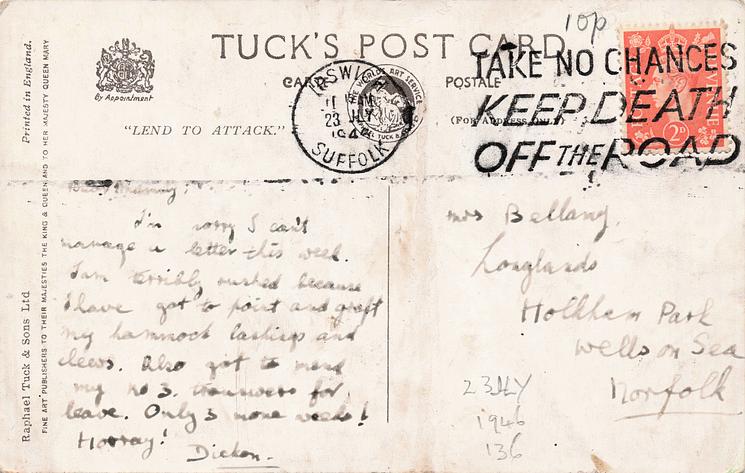 10p
TUCK'S POST CARD
CARTE POSTALE
By Appointment
"LEND TO ATTACK."
(For Address Only)
IPSWICH
11 AM
23 JLY
194
SUFFOLK
TAKE NO CHANCES
KEEP DEATH
OFF THE ROAD
2D
Printed in England.
Raphael Tuck & Sons Ltd
FINE ART PUBLISHERS TO THEIR MAJESTIES THE KING & QUEEN AND TO HER MAJESTY QUEEN MARY
Mummy;
I'm sorry I can't
manage a letter this week.
I am terribly rushed because
I have got to point and graft
my hammock lashings and
clews. Also got to mend
my no 3. trousers for
leave. Only 3 more weeks!
Horray! Dickon.
Mrs Bellamy,
Longlands
Holkham Park
Wells on Sea
Norfolk
23 JLY
1946
136